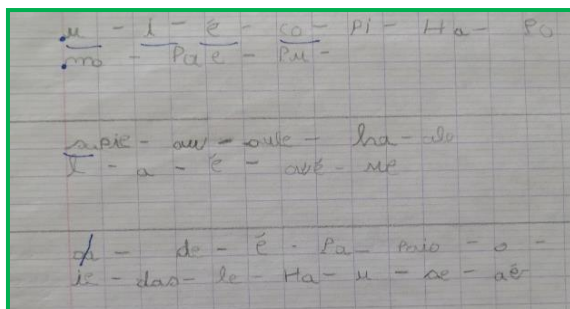 u - i - é - co - pi - Ha - Po
mo - Pae - Pu -
aupie - au - aule - ha - do
l - a - é - avé - me
de - é - Pa - Paio - o -
ie - dao - le - Ha - u - se - aé